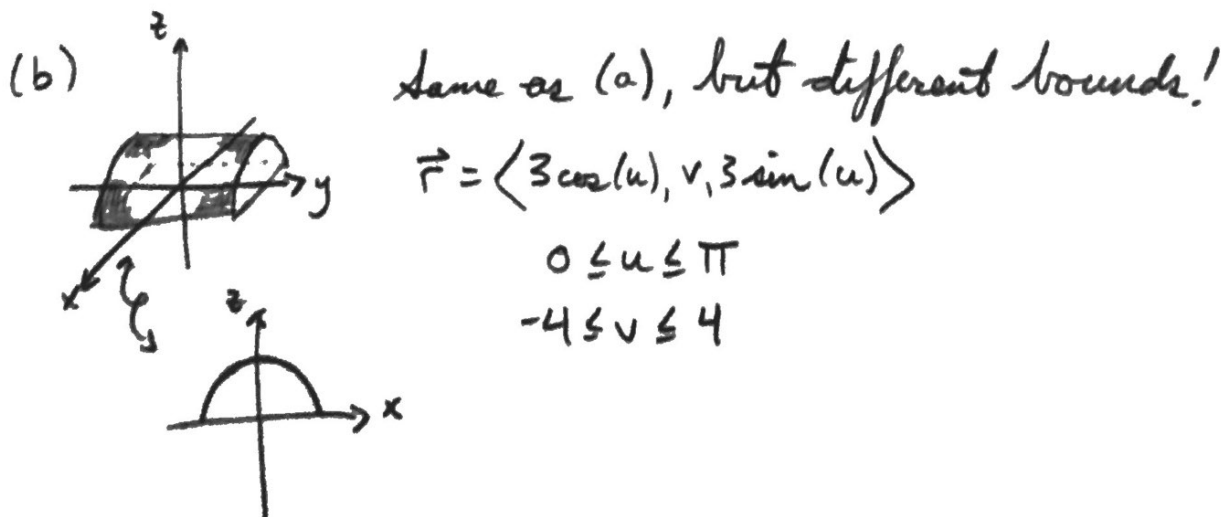 (b)
z
y
x
Same as (a), but different bounds!
r⃗ = ⟨3cos(u), v, 3 sin(u)⟩
0 ≤ u ≤ π
-4 ≤ v ≤ 4
z
x